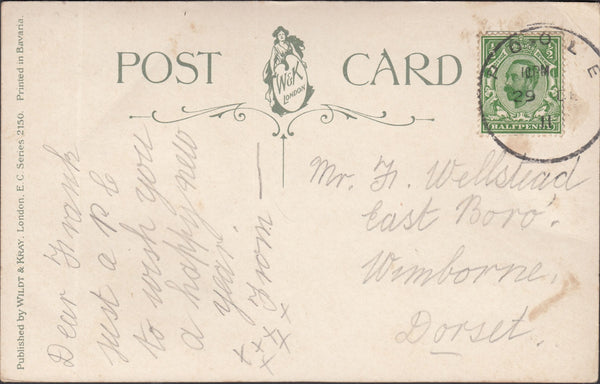 POST CARD
W&K
LONDON
Published by WILDT & KRAY, London, E. C. Series 2150. Printed in Bavaria.
Dear Frank
just a P C
to wish you
a happy new
year.
From —
+ x x x x x
Mr. F. Wellstead
East Boro.
Wimborne.
Dorset.
POOLE
29
11
HALFPENNY